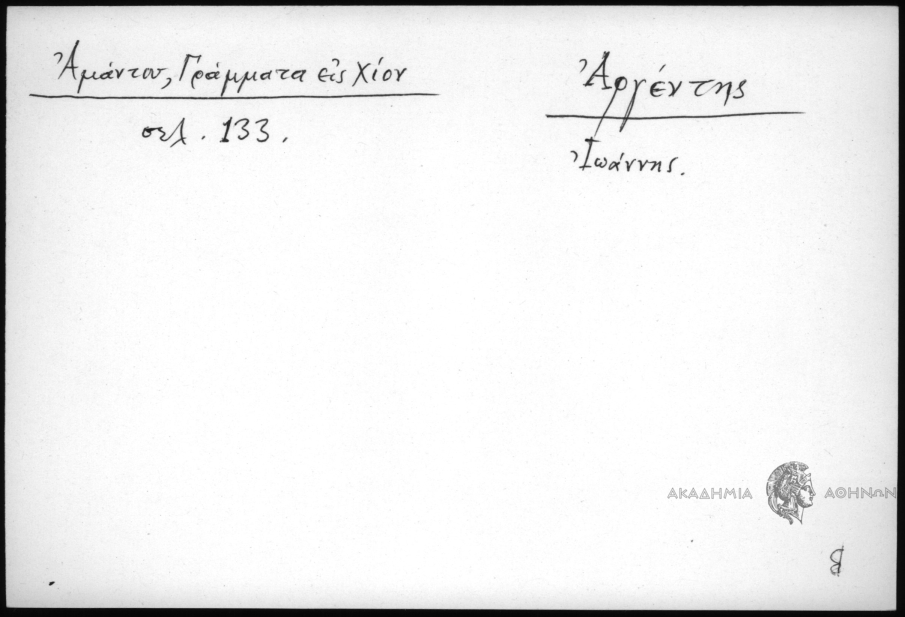 Ἀμάντου, Γράμματα εἰς Χίον
σελ. 133.
Ἀργέντης
Ἰωάννης.
ΑΚΑΔΗΜΙΑ ΑΘΗΝΩΝ